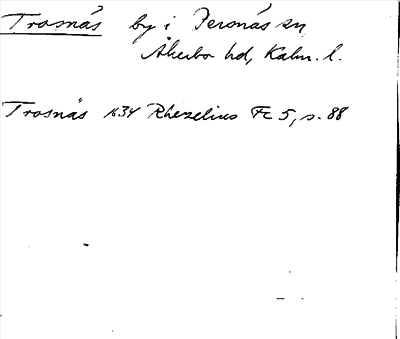 Trosnäs by i Persnäs sn
Åkerbo hd, Kalm. l.
Trosnäs 1634 Rhezelius Fc 5, s. 88